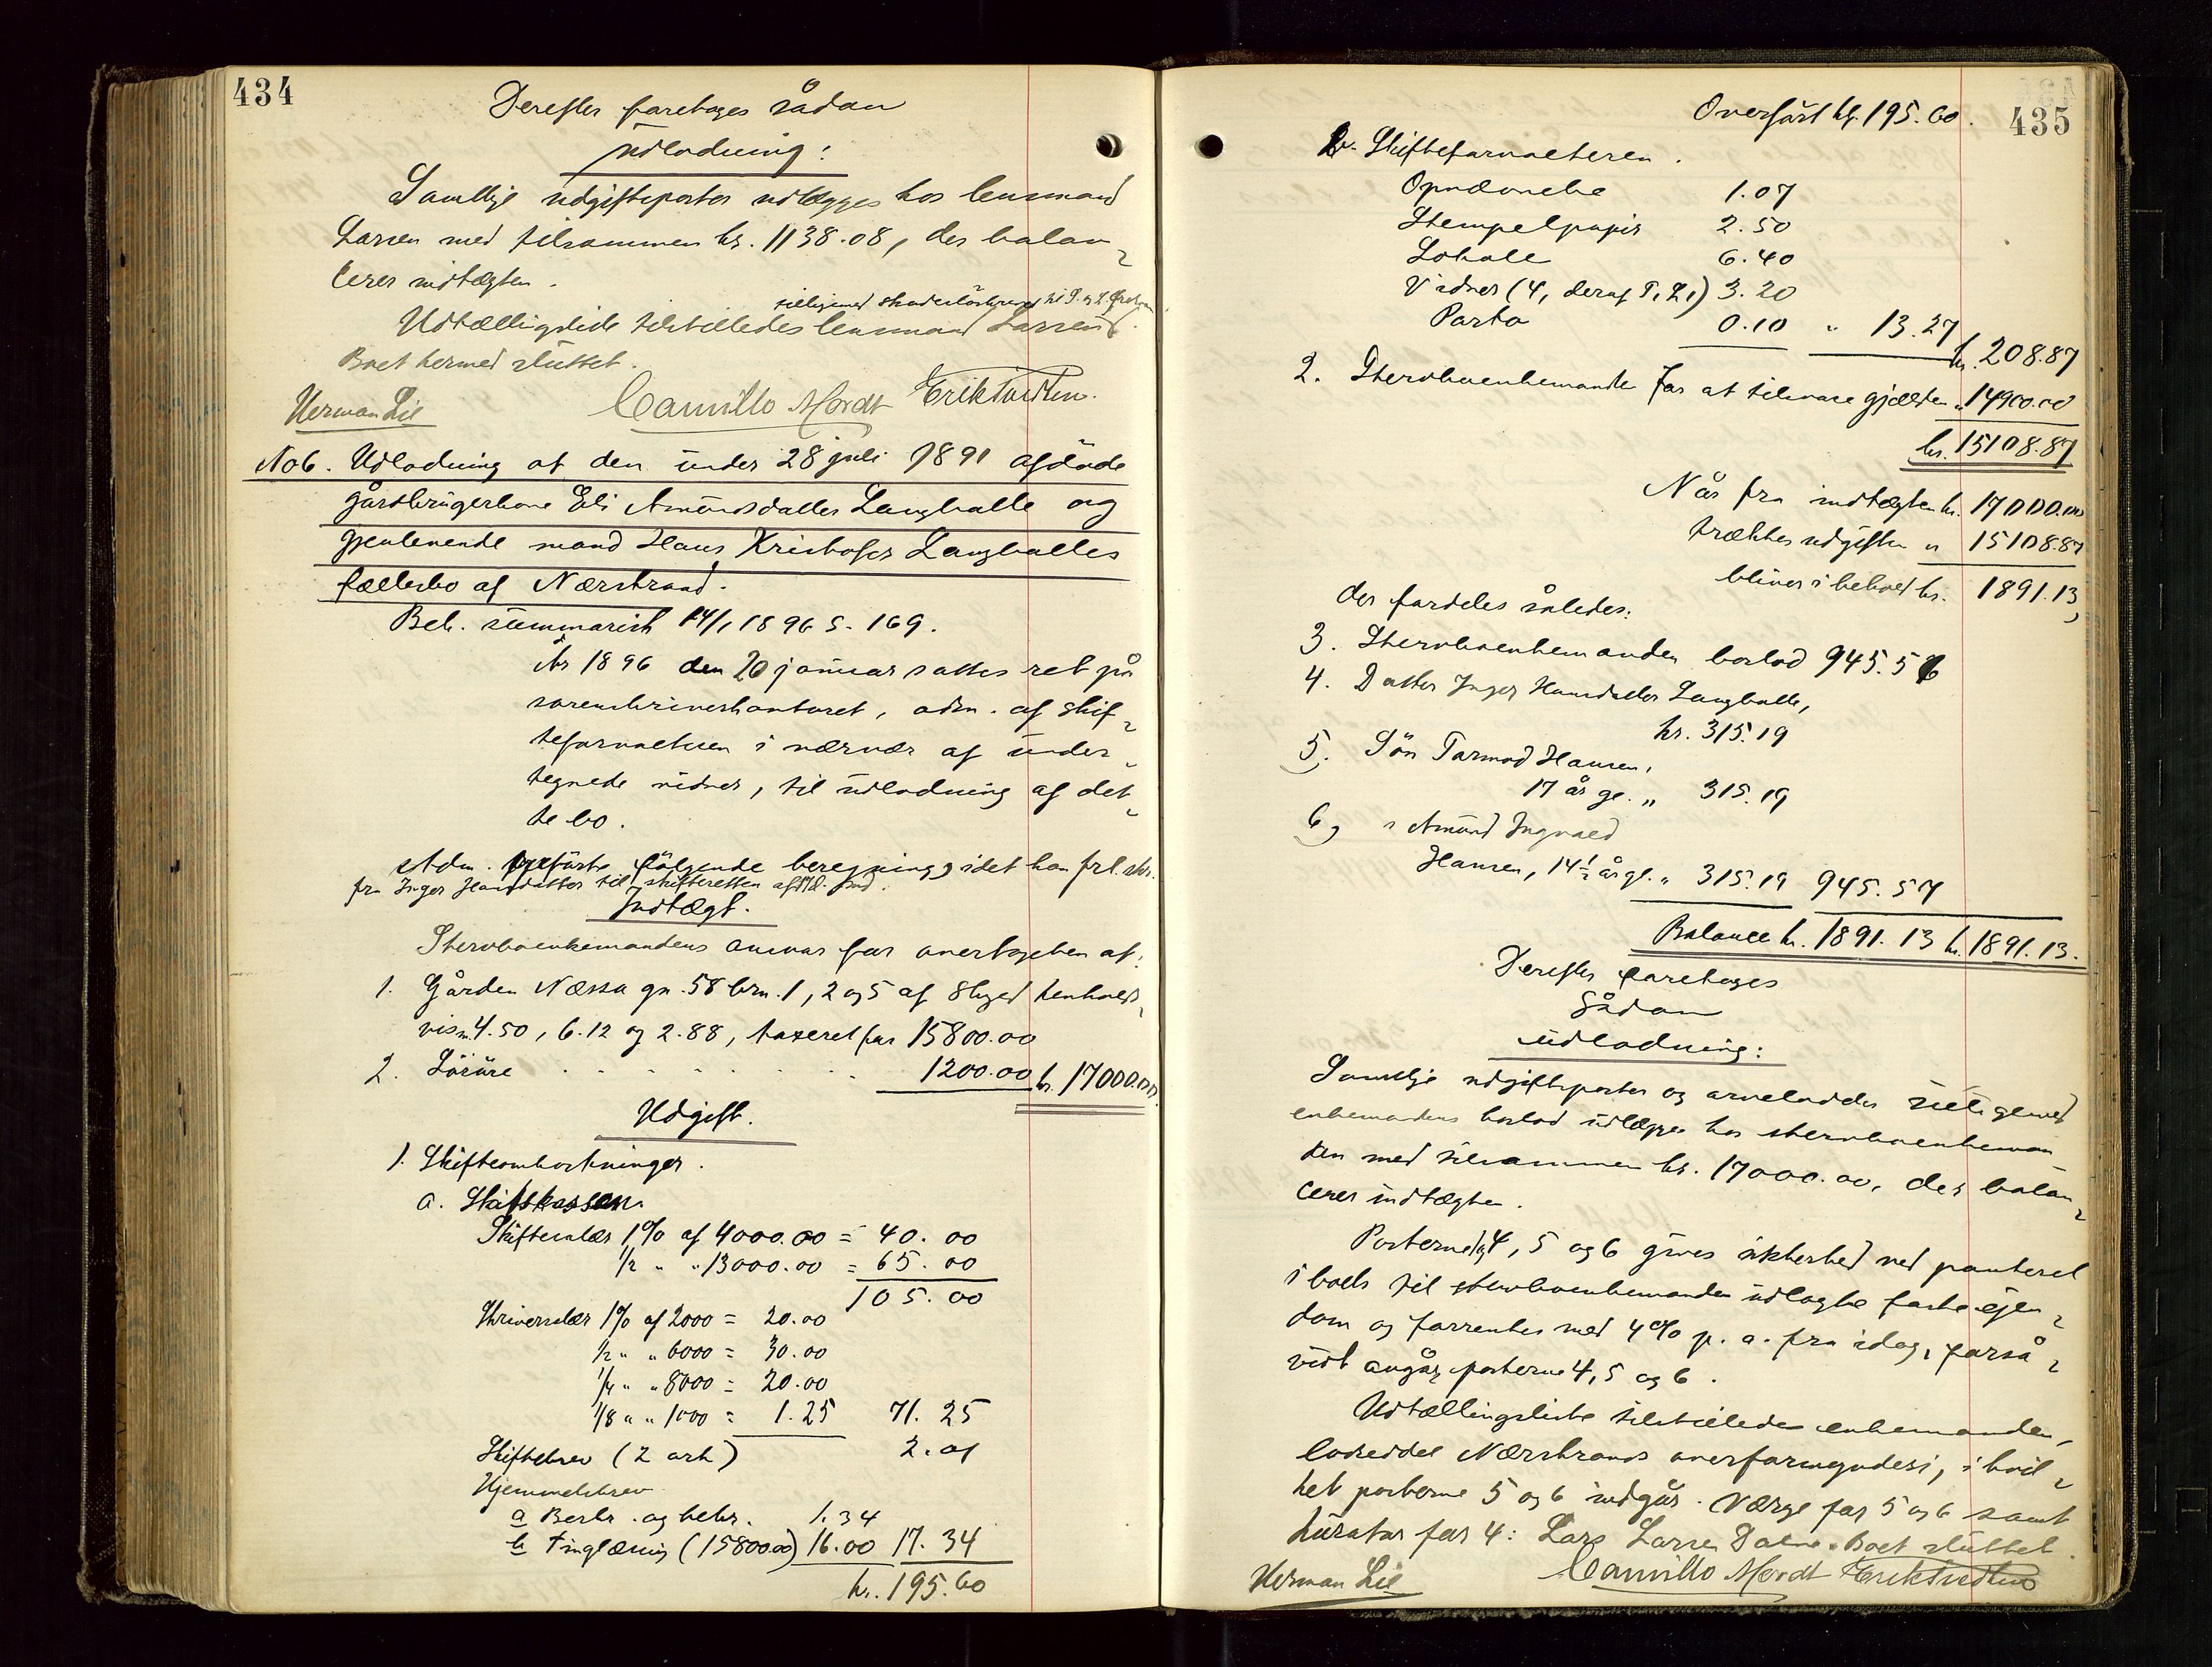 434
Derefter foretoges sådan
udlodning:
Samtlige udgiftsposter udlægges hos lensmand
Larsen med tilsammen kr. 1138.08, der balan-
cerer indtægten.
tilligemed
Udtællingsliste tilstilledes lensmand Larsen
Boet hermed sluttet.
Herman Lie Camillo Mordt Erik Tvedten.
No 6. Udlodning af den under 28 juli 1891 afdöde
gårdbrugerkone Eli Amundsdatter Langballe og
gjenlevende mand Hans Kristofer Langballes
fællesbo af Nærstrand.
Beh. summarisk 14/1 1896 S. 169.
År 1896 den 20 januar sattes ret på
sorenskriverkontoret, adm. af skif-
teforvalteren i nærvær af under-
tegnede vidner, til udlodning af det-
te bo.
Adm. fölgende beregning, idet han frl. skr.
fra Inger Hansdatter til skifteretten
Indtægt.
Stervboenkemandens ansvar for overtagelsen af:
1. Gården Næssa gn. 58 brn. 1, 2 og 5 af skyld henholds-
vis m. 4.50, 6.12 og 2.88, taxeret for 15800.00
2. Lösöre . . . . . . . 1200.00 kr. 17000.00.
Udgift.
1. Skifteomkostninger.
a. Statskassen
Skiftesalær 1% af 4000.00 = 40.00
1/2 " " 13000.00 = 65.00
105.00
Skriversalær 1% af 2000 = 20.00
1/2 " " 6000 = 30.00
1/4 " " 8000 = 20.00
1/8 " " 1000 = 1.25 71.25
Skiftebrev (2 ark) 2.01
Hjemmelsbrev
a Beskr. og bekr. 1.34
b Tinglæsning (15800.00) 16.00 17.34
kr. 195.60
435
Overfört kr. 195.60.
b. Skifteforvalteren.
Opnævnelse 1.07
Stempelpapir 2.50
Lokale 6.40
Vidner (4, deraf T, L,) 3.20
Porto 0.10 " 13.27
kr. 208.87
2. Stervboenkemanden for at tilsvare gjælden " 14900.00
kr. 15108.87
Når fra indtægten kr. 17000.00
trækkes udgiften " 15108.87
bliver i behold kr. 1891.13,
der fordeles således:
3. Stervboenkemanden boslod 945.56
4. Datter Inger Hansdatter Langballe,
kr. 315.19
5. Sön Tormod Hansen,
17 år gl. " 315.19
6, " Amund Ingvald
Hansen, 14 1/2 år gl. " 315.19 945.57
Balance kr. 1891.13 kr. 1891.13.
Derefter foretoges
sådan
udlodning:
Samtlige udgiftsposter og arvelodder tilligemed
enkemandens boslod udlægges hos stervboenkeman
den med tilsammen kr. 17000.00, der balan-
cerer indtægten.
Posterne 4, 5 og 6 gives sikkerhed ved panteret
i boets til stervboenkemanden udlagte faste ejen-
dom og forrentes med 4% p. a. fra idag, forså-
vidt angår posterne 4, 5 og 6.
Udtællingsliste tilstilledes enkemanden,
lodseddel Nærstrands overformynderi, i hvil-
ket posterne 5 og 6 indgår. Værge for 5 og 6 samt
kurator for 4: Lars Larsen Dalene. Boet sluttet.
Herman Lie Camillo Mordt Erik Tvedten